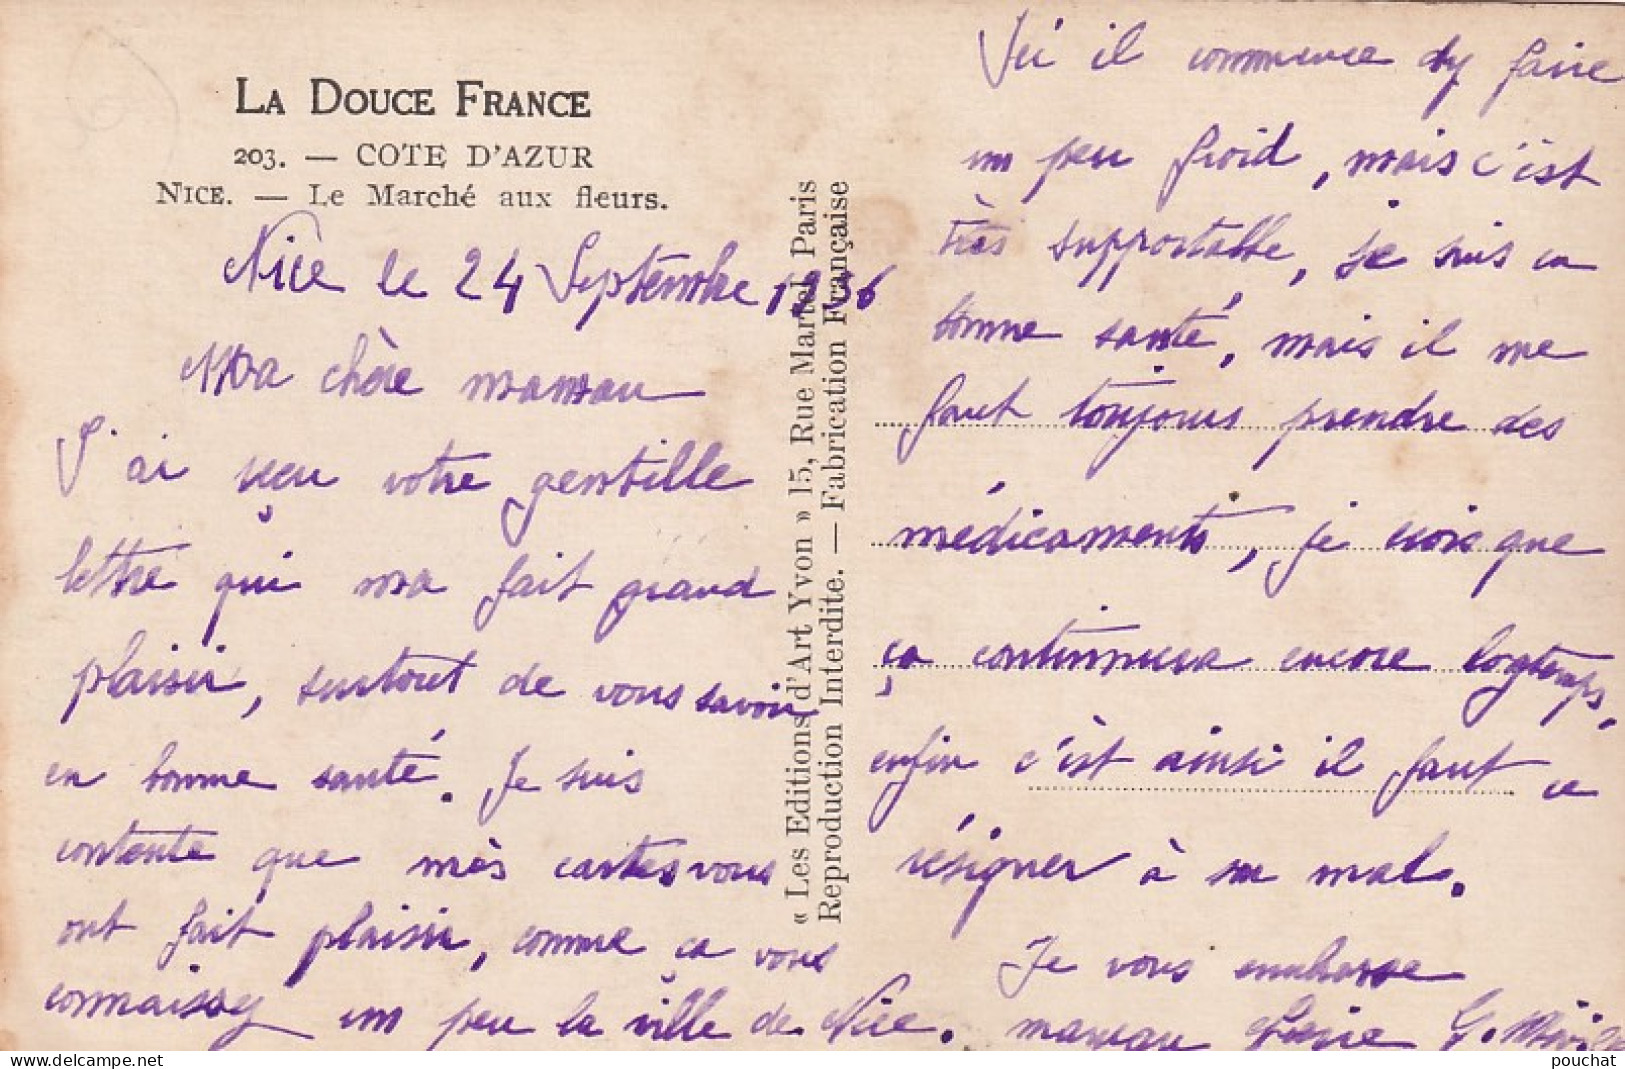 LA DOUCE FRANCE
203. — COTE D'AZUR
NICE. — Le Marché aux fleurs.
Nice le 24 Septembre 1936
Ma chère maman
J'ai reçu votre gentille
lettre qui ma fait grand
plaisir, surtout de vous savoir
en bonne santé. Je suis
contente que mès cartes vous
ont fait plaisir, comme ça vous
connaissez un peu la ville de Nice.
« Les Editions d'Art Yvon » 15, Rue Martel, Paris
Reproduction Interdite. — Fabrication Française
Ici il commence dy faire
un peu froid, mais c'est
très supportable, je suis en
bonne santé, mais il me
faut toujours prendre des
médicaments, je crois que
ça continuera encore longtemps,
enfin c'est ainsi il faut ce
résigner à son mal.
Je vous embrasse
maman chérie G.
pouchat